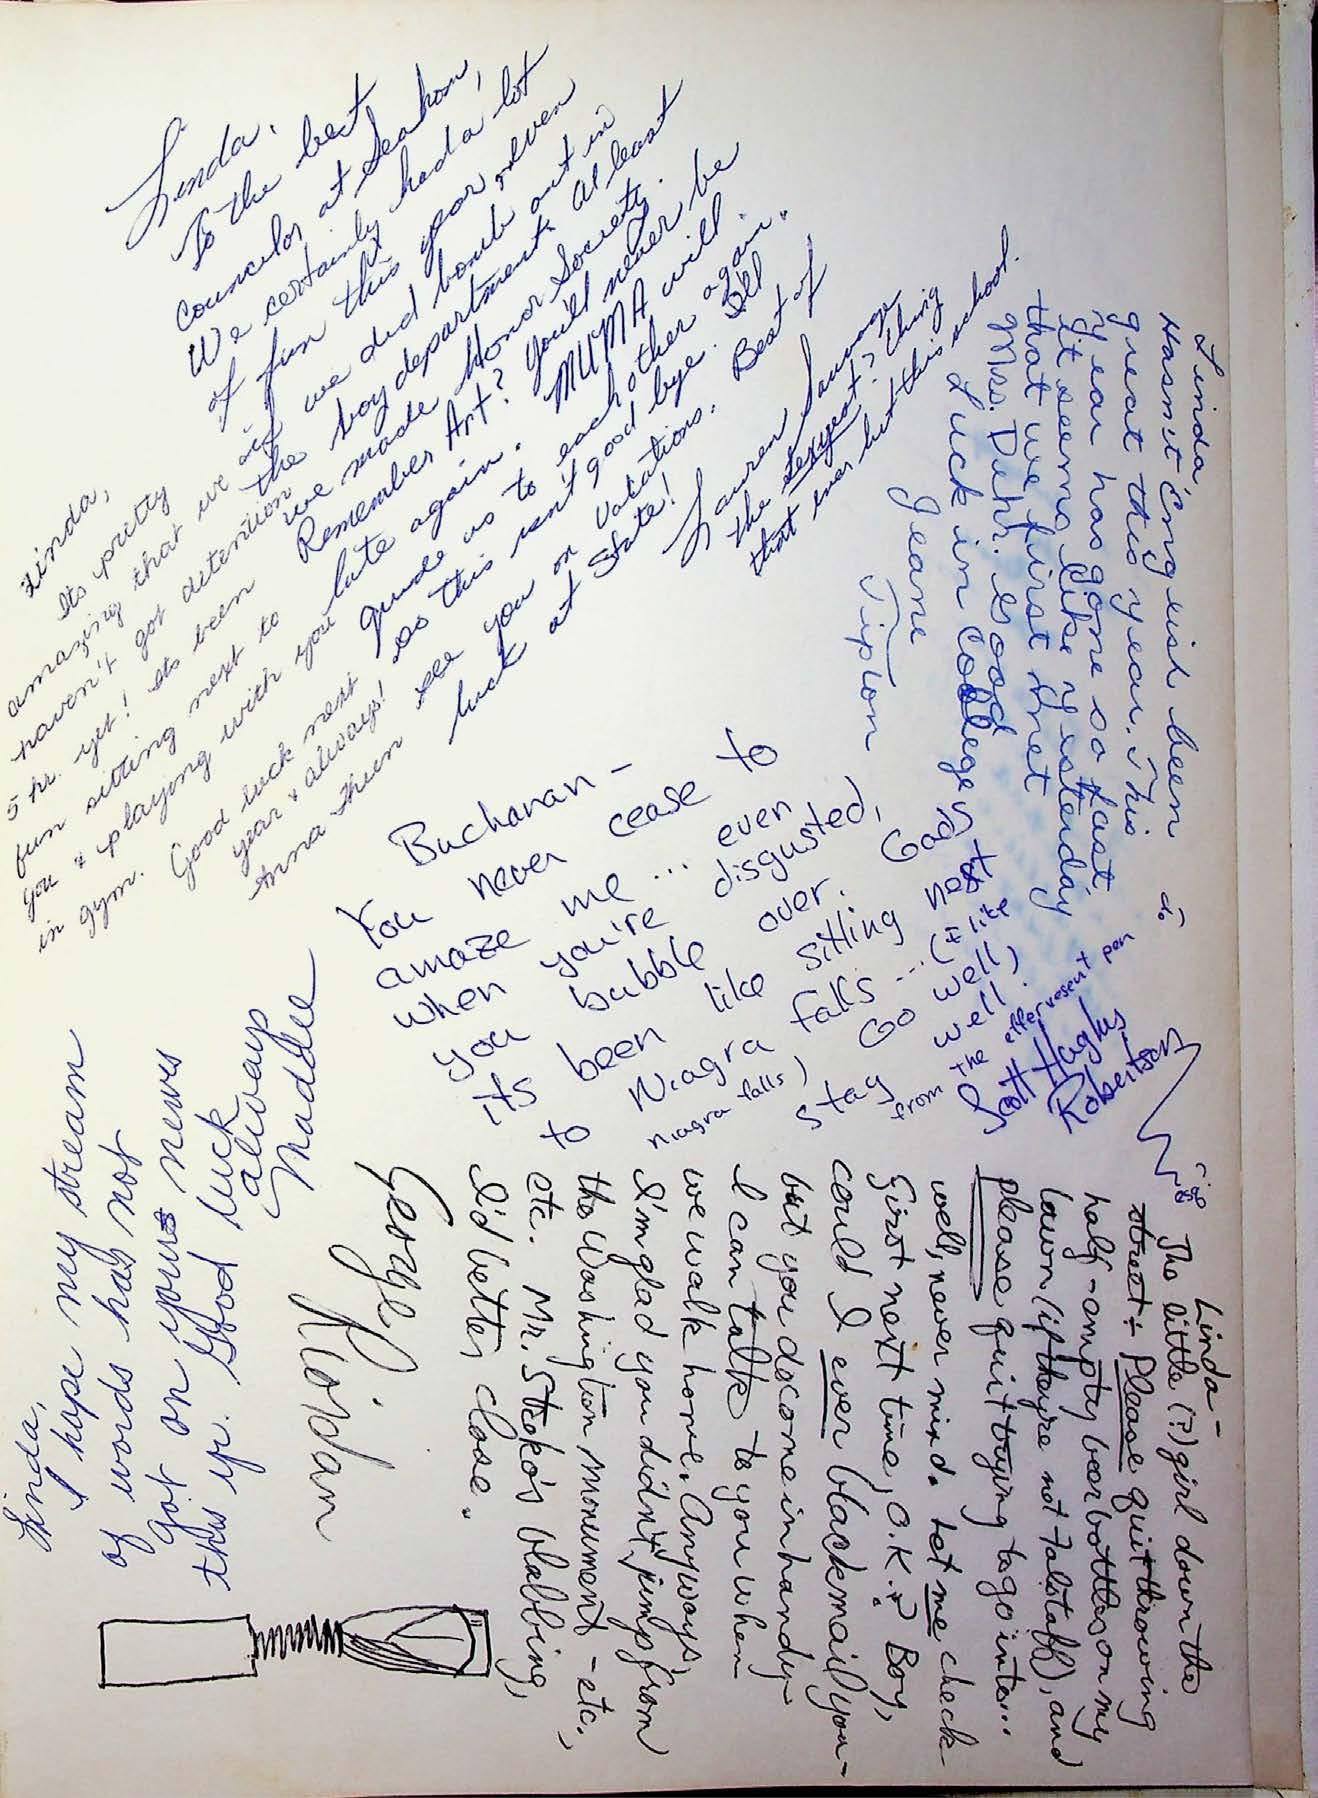 Linda,
To the best
councelor at Seahom,
We certainly had a lot
of fun this year, even
if we did bomb out in
the boy department. At least
we made Honor Society.
Remember Art? You'll never be
late again. MUMA will
guide us to each other again.
so this isn't good bye. I'll
see you on vacations. Best of
luck at State!
Lauren
the sexyest? thing
that ever hit this school.
Linda,
Its pretty
amazing that we
haven't got detention
5 hr. yet! Its been
fun sitting next to
you & playing with you
in gym. Good luck next
year & always!
Anna
Linda,
Hasn't English been
great this year. This
year has gone so fast
it seems like yesterday
that we first met
Mrs. Duhr. Good
luck in College
Jeane
Tipton
Buchanan -
You never cease to
amaze me ... even
when you're disgusted,
you bubble over. God,
its been like sitting next
to Niagra falls ... (I like
Niagra falls) Go well,
stay well.
from the effervesent pen
Scott Hughes
Robertson
Linda,
I hope my stream
of words has not
got on yours nerves
this yr. Good luck
always
Maddee
Linda -
The little (?) girl down the
street ÷ Please quit throwing
half-empty beer bottles on my
lawn (if they're not Falstaff), and
please quit trying to go into...
well, never mind. Let me check
first next time, O.K.? Boy,
could I ever blackmail you -
but you do come in handy -
I can talk to you when
we walk home. Anyways,
I'm glad you didn't jump from
the Washington monument - etc.,
etc. Mr. Steko's blabbing,
I'd better close.
George
Riordan